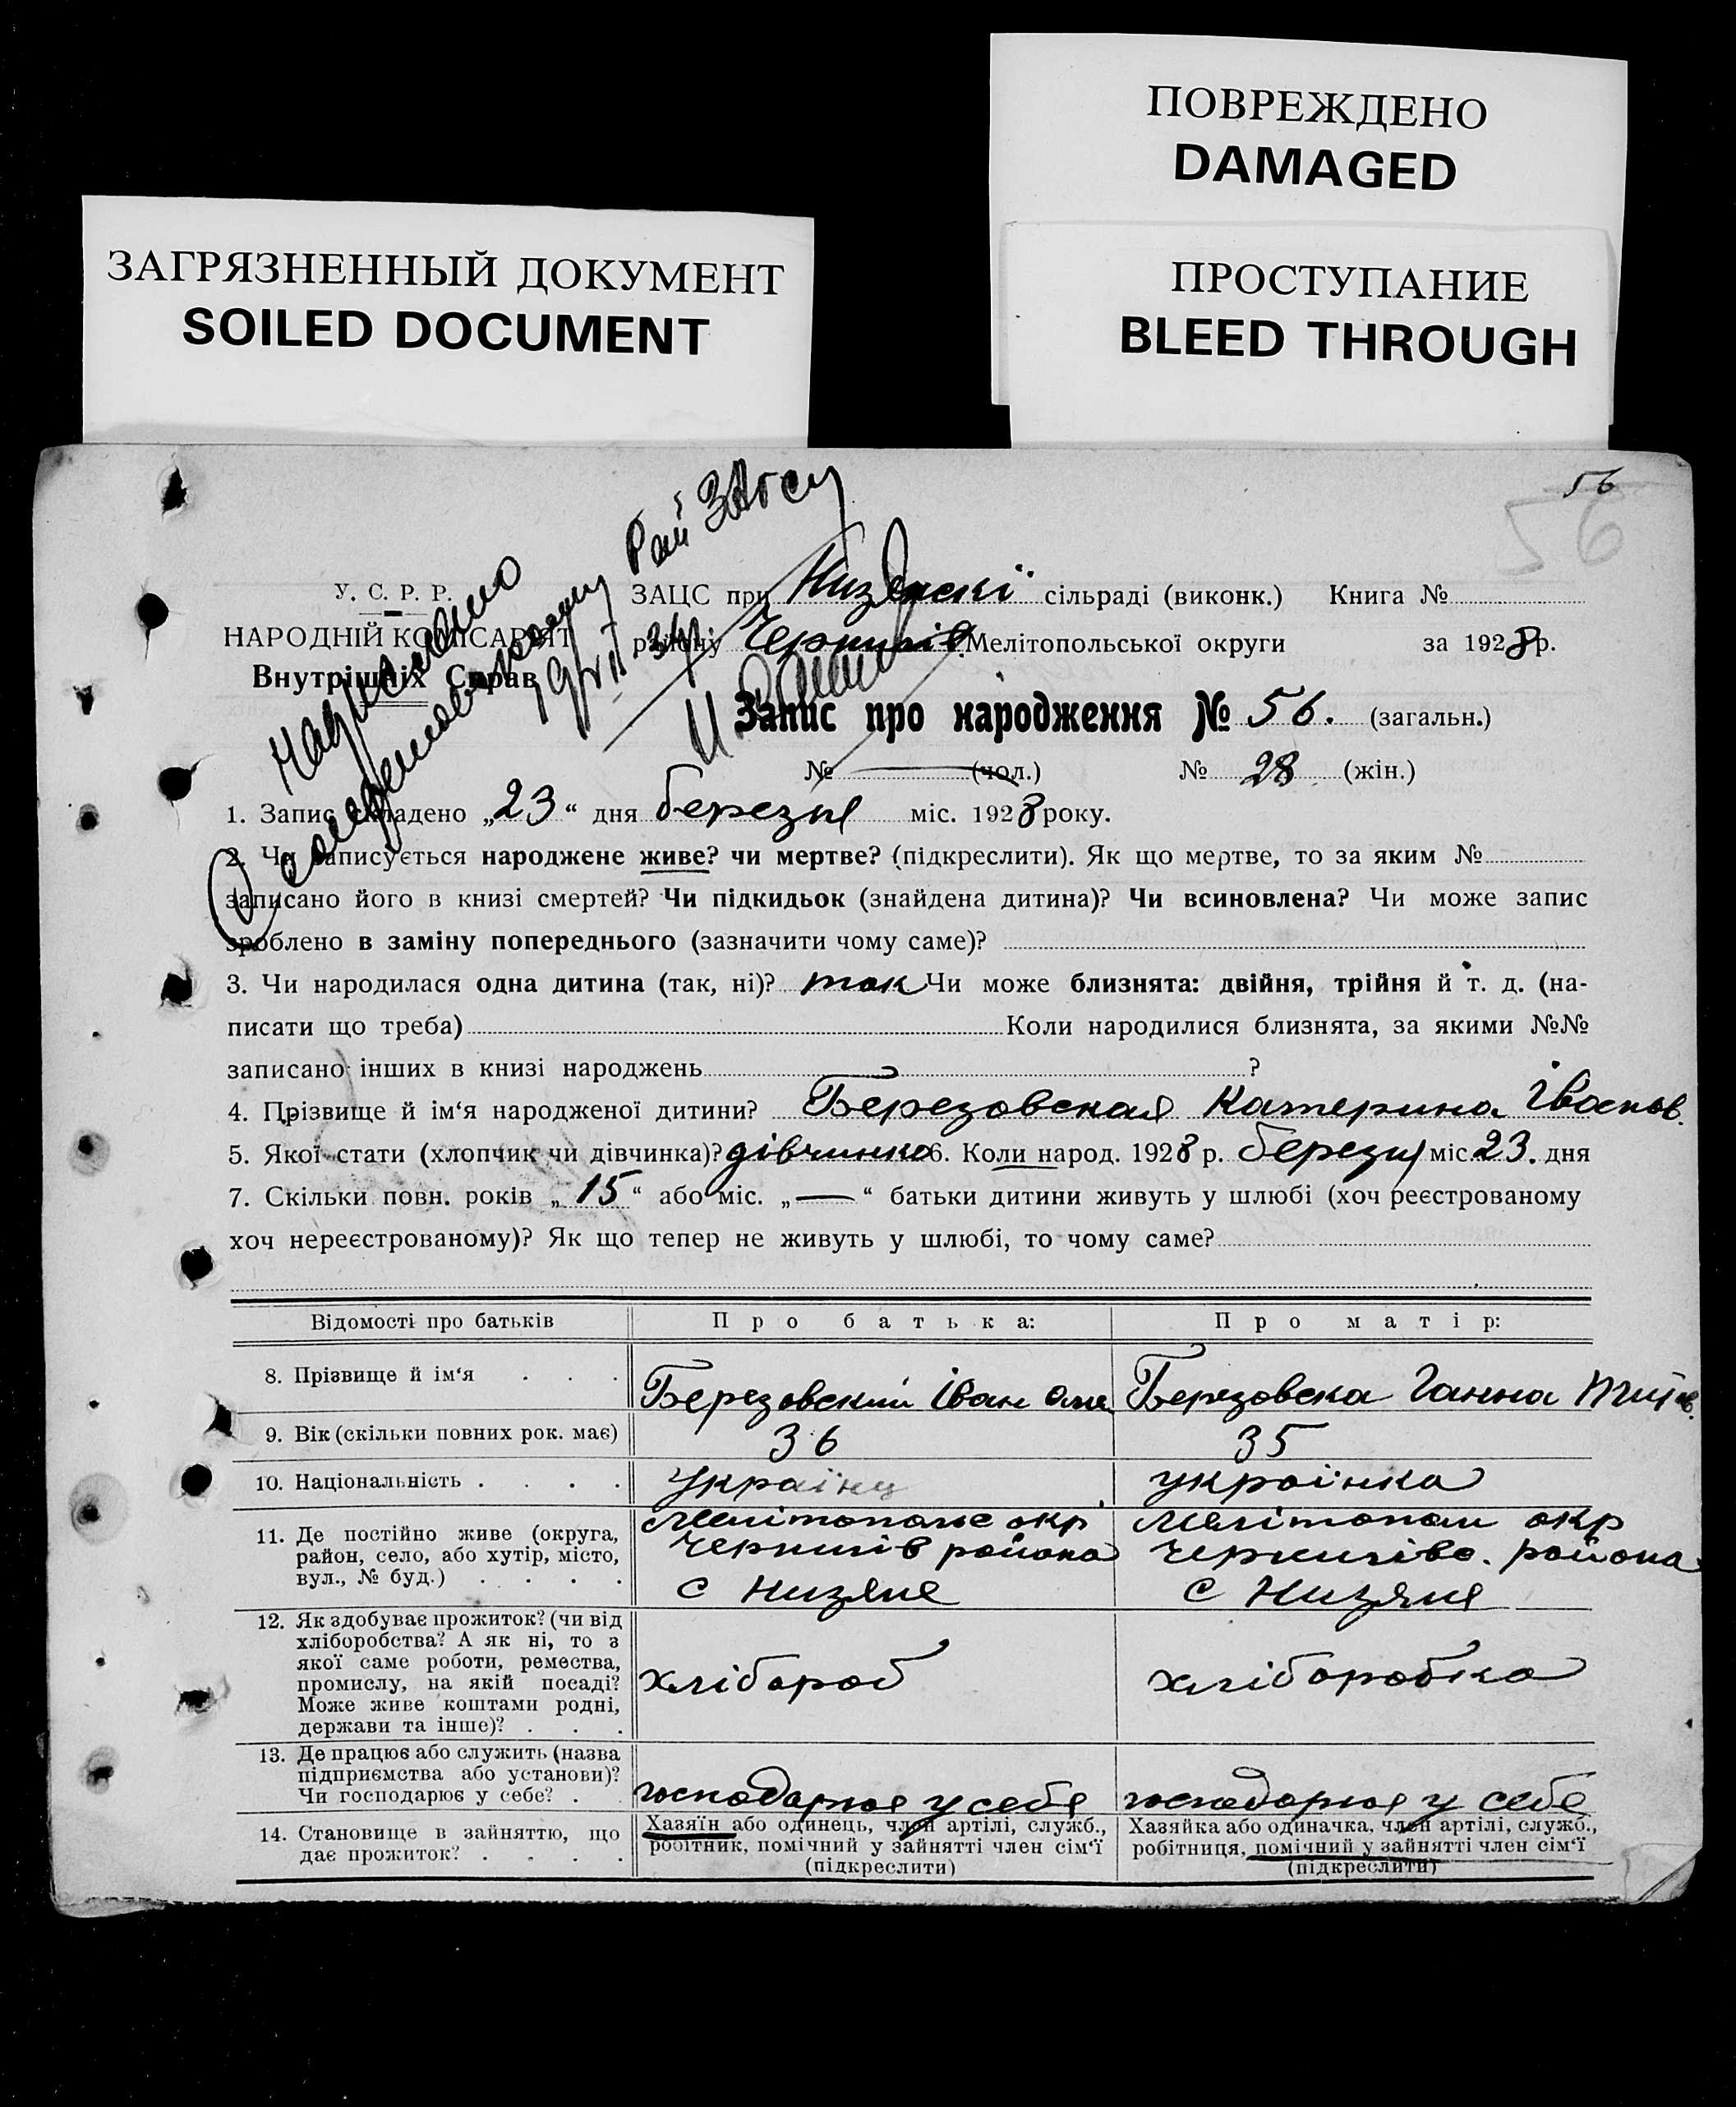 ПОВРЕЖДЕНО
DAMAGED
ЗАГРЯЗНЕННЫЙ ДОКУМЕНТ
SOILED DOCUMENT
ПРОСТУПАНИЕ
BLEED THROUGH
56
56
Рай ЗАГСу
У. С. Р. Р.
НАРОДНІЙ КОМІСАРІЯТ
Внутрішніх Справ
ЗАЦС при Низянскі сільраді (виконк.) Книга №
району Чернигів Мелітопольської округи за 1928 р.
Запис про народження № 56. (загальн.)
№ — (чол.) № 28 (жін.)
1. Запис складено „23“ дня березня міс. 1928 року.
2. Чи записується народжене живе? чи мертве? (підкреслити). Як що мертве, то за яким №
записано його в книзі смертей? Чи підкидьок (знайдена дитина)? Чи всиновлена? Чи може запис
зроблено в заміну попереднього (зазначити чому саме)?
3. Чи народилася одна дитина (так, ні)? так Чи може близнята: двійня, трійня й т. д. (на-
писати що треба) Коли народилися близнята, за якими №№
записано інших в книзі народжень ?
4. Прізвище й ім‘я народженої дитини? Березовская Катерина Іванов.
5. Якої стати (хлопчик чи дівчинка)? дівчинка 6. Коли народ. 1928 р. березня міс. 23. дня
7. Скільки повн. років „15“ або міс. „—“ батьки дитини живуть у шлюбі (хоч реєстрованому
хоч нереєстрованому)? Як що тепер не живуть у шлюбі, то чому саме?
Відомості про батьків Про батька: Про матір:
8. Прізвище й ім‘я . . . Березовский Іван Березовска Ганна
9. Вік (скільки повних рок. має) 36 35
10. Національність . . . . Українц українка
11. Де постійно живе (округа, район, село, або хутір, місто, вул., № буд.) . . . .
Мелітополь окр Чернигів района с Низяне
Мелітопол окр Чернигівс. района с Низяня
12. Як здобуває прожиток? (чи від хліборобства? А як ні, то з якої саме роботи, ремества, промислу, на якій посаді? Може живе коштами родні, держави та інше)? . . .
хлібороб хліборобка
13. Де працює або служить (назва підприємства або установи)? Чи господарює у себе? .
господарює у себе господарює у себе
14. Становище в зайняттю, що дає прожиток? . . . .
Хазяїн або одинець, член артілі, служб., робітник, помічний у зайнятті член сім‘ї (підкреслити)
Хазяйка або одиначка, член артілі, служб., робітниця, помічний у зайнятті член сім‘ї (підкреслити)